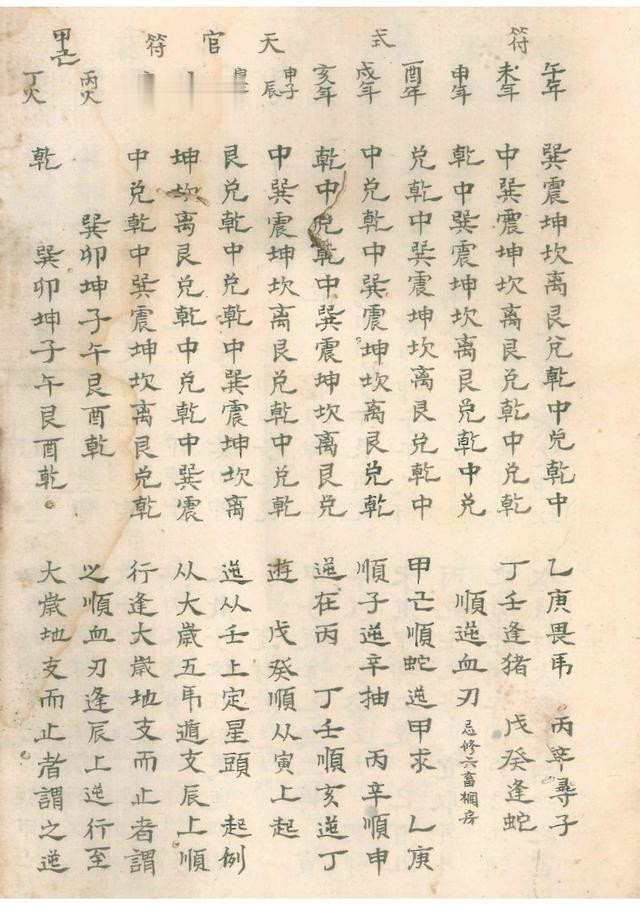 符式天官符
午年 巽震坤坎离艮兑乾中兑乾中
未年 中巽震坤坎离艮兑乾中兑乾
申年 乾中巽震坤坎离艮兑乾中兑
酉年 兑乾中巽震坤坎离艮兑乾中
戌年 中兑乾中巽震坤坎离艮兑乾
亥年 乾中兑乾中巽震坤坎离艮兑
申子辰 中巽震坤坎离艮兑乾中兑乾
艮兑乾中兑乾中巽震坤坎离
坤坎离艮兑乾中兑乾中巽震
中兑乾中巽震坤坎离艮兑乾
甲己
丙火 巽卯坤子午艮酉乾
丁火 乾 巽卯坤子午艮酉乾。
乙庚畏馬 丙辛尋子
丁壬逢猪 戊癸逢蛇
順逆血刃 忌修六畜欄房
甲己順蛇逆甲求 乙庚
順子逆辛抽 丙辛順申
逆在丙 丁壬順亥逆丁
遊 戊癸順从寅上起
逆从壬上定星頭 起例
从大歲五馬遁支辰上順
行逢大歲地支而止者謂
之順血刃逢辰上逆行至
大歲地支而止者謂之逆